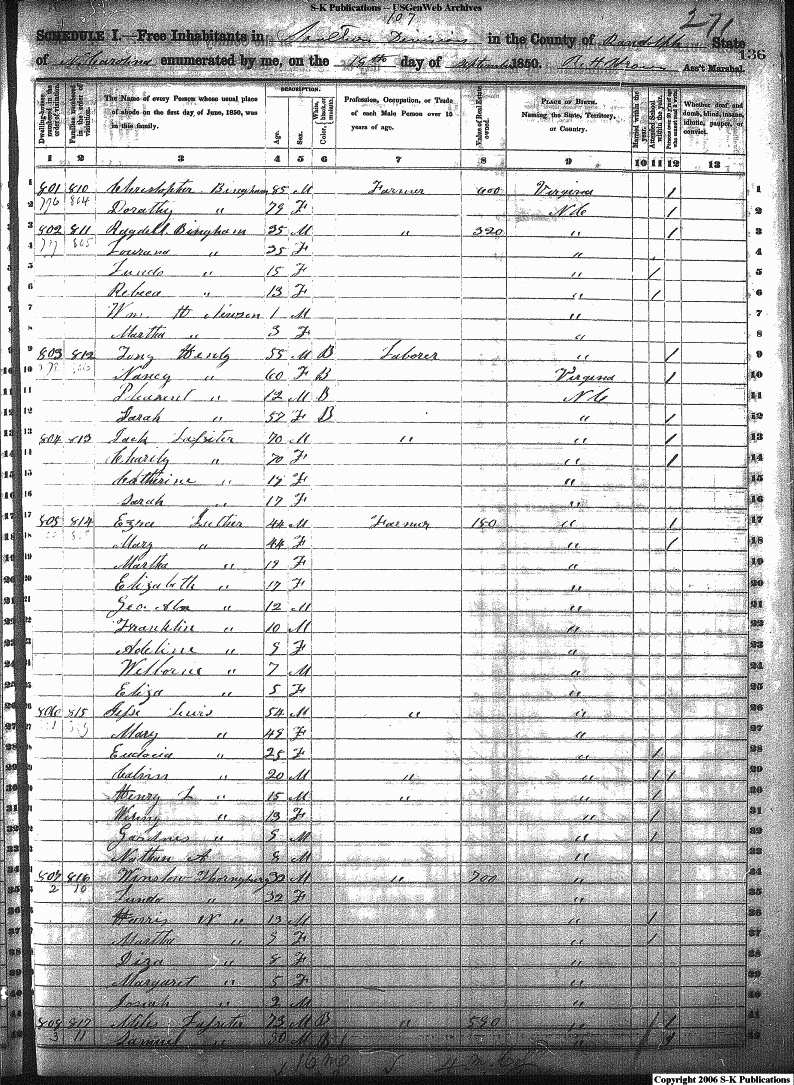 S-K Publications -- USGenWeb Archives
107
271
SCHEDULE I.—Free Inhabitants in Southern Division in the County of Randolph State
of N. Carolina enumerated by me, on the 18th day of Septemb 1850. Ass't Marshal.
136
Dwelling-houses numbered in the order of visitation. Families numbered in the order of visitation. The Name of every Person whose usual place of abode on the first day of June, 1850, was in this family. DESCRIPTION. Age. Sex. Color, White, black, or mulatto. Profession, Occupation, or Trade of each Male Person over 15 years of age. Value of Real Estate owned. PLACE OF BIRTH. Naming the State, Territory, or Country. Married within the year. Attended School within the year. Persons over 20 y'rs of age who cannot read & write. Whether deaf and dumb, blind, insane, idiotic, pauper, or convict.
1 2 3 4 5 6 7 8 9 10 11 12 13
1 801 810 Christopher Bingham 85 M Farmer 600 Virginia / 1
2 776 804 Dorathy " 79 F N C / 2
3 802 811 Bingham 35 M " 320 " / 3
4 " 35 F " 4
5 " 15 F " / 5
6 Rebeca " 13 F " / 6
7 Wm H 1 M " 7
8 Martha " 3 F " 8
9 803 812 55 M B Laborer " / 9
10 Nancy " 60 F B Virginia / 10
11 12 M B N C 11
12 Sarah " 57 F B " / 12
13 804 813 Jack Lassiter 70 M " " / 13
14 Charity " 70 F " / 14
15 Catherine " 19 F " 15
16 Sarah " 17 F " 16
17 805 814 Ezra Luther 44 M Farmer 180 " / 17
18 Mary " 44 F " / 18
19 Martha " 19 F " 19
20 Elizabeth " 17 F " 20
21 Geo. " 12 M " 21
22 Franklin " 10 M " 22
23 Adeline " 9 F " 23
24 Welborne " 7 M " 24
25 Eliza " 5 F " 25
26 806 815 Lewis 54 M " " 26
27 Mary " 49 F " 27
28 Eudocia " 25 F " / 28
29 Calvin " 20 M " " / / 29
30 Henry L " 15 M " " / 30
31 " 13 F " / 31
32 " 9 M " / 32
33 Nathan A " 8 M " 33
34 807 816 Winslow Thornburg 32 M " 700 " 34
35 2 10 " 32 F " 35
36 N " 13 M " / 36
37 Martha " 9 F " / 37
38 " 8 F " 38
39 Margaret " 5 F " 39
40 Josiah " 2 M " 40
41 808 817 Miles Lassiter 73 M B " 580 " / 41
42 3 11 Samuel " 30 M B " / 42
Copyright 2006 S-K Publications